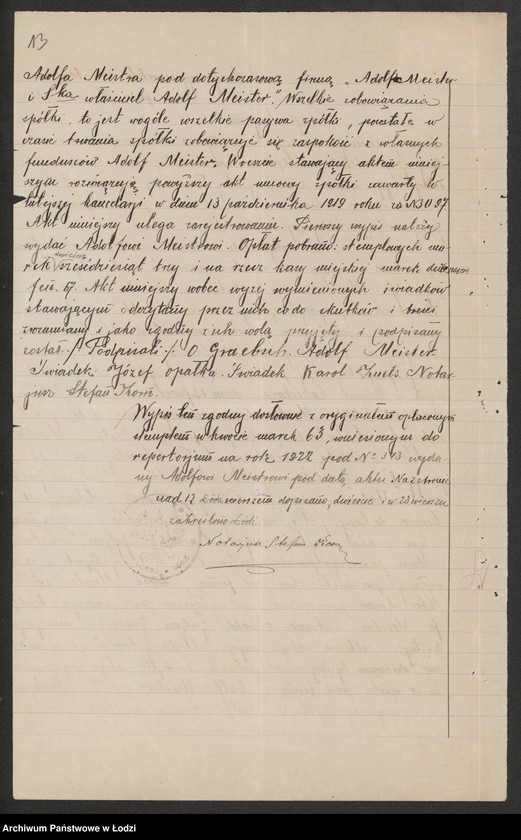 13
Adolfa Meistra pod dotychczasową firmą „Adolf Meister
i Ska właściciel Adolf Meister". Wszelkie zobowiązania
spółki, to jest wogóle wszelkie pasywa spółki, powstałe w
czasie trwania spółki zobowiązuje się zaspokoić z własnych
funduszów Adolf Meister. Wreszcie stawający aktem niniej-
szym rozwiązują powyższy akt umowy spółki zawarty w
tutejszej kancelarji w dniu 13 października 1919 roku za N3097
Akt niniejszy ulega zarejestrowaniu. Pierwszy wypis należy
wydać Adolfowi Meistrowi. Opłat pobrano: stemplowych ma-
rek sześćdziesiąt trzy i na rzecz kasy miejskiej marek
Akt niniejszy wobec wyżej wymienionych świadków
stawającym odczytany przez nich co do skutków i treści
zrozumiany i jako zgodny z ich wolą przyjęty i podpisany
został. /Podpisali:/ O Graebsch. Adolf Meister.
Świadek Józef Opałka. Świadek Karol Notar-
jusz Stefan Korn.
Wypis ten zgodny dosłownie z oryginałem opłaconym
stemplem w kwocie marek 63, wniesionym do
repertorjum na rok 1922 pod No 313 wyda-
ny Adolfowi Meistrowi pod datą aktu. Na stronie
nad 12 wierszem dopisano, dwieście i w 23 wierszu
zakreślono Łódź
Notarjusz Stefan Korn
Archiwum Państwowe w Łodzi